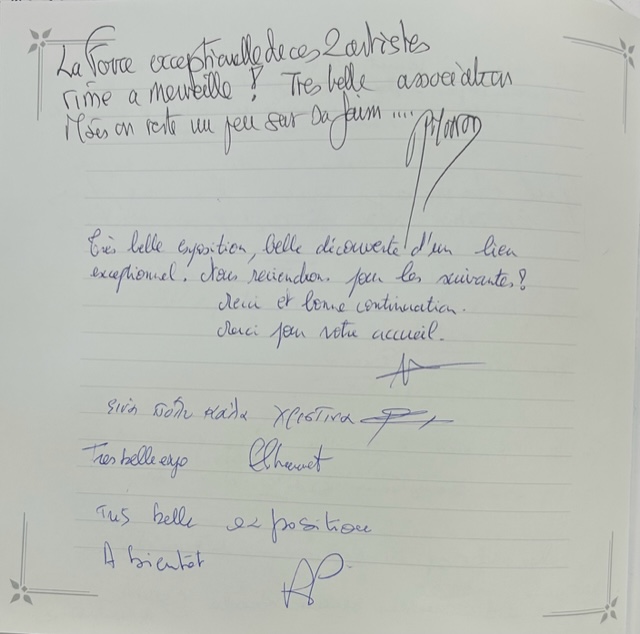 La Force exceptionnelle de ces 2 artistes
rime a merveille ! Tres belle association
Mais on reste un peu sur Sa faim ....
Très belle exposition, belle découverte d'un lieu
exceptionnel. Nous reviendrons pour les suivantes !
Merci et bonne continuation.
Merci pour votre accueil.
είναι πολυ καλα χριστινα
Tres belle expo
Tres belle exposition
A bientot